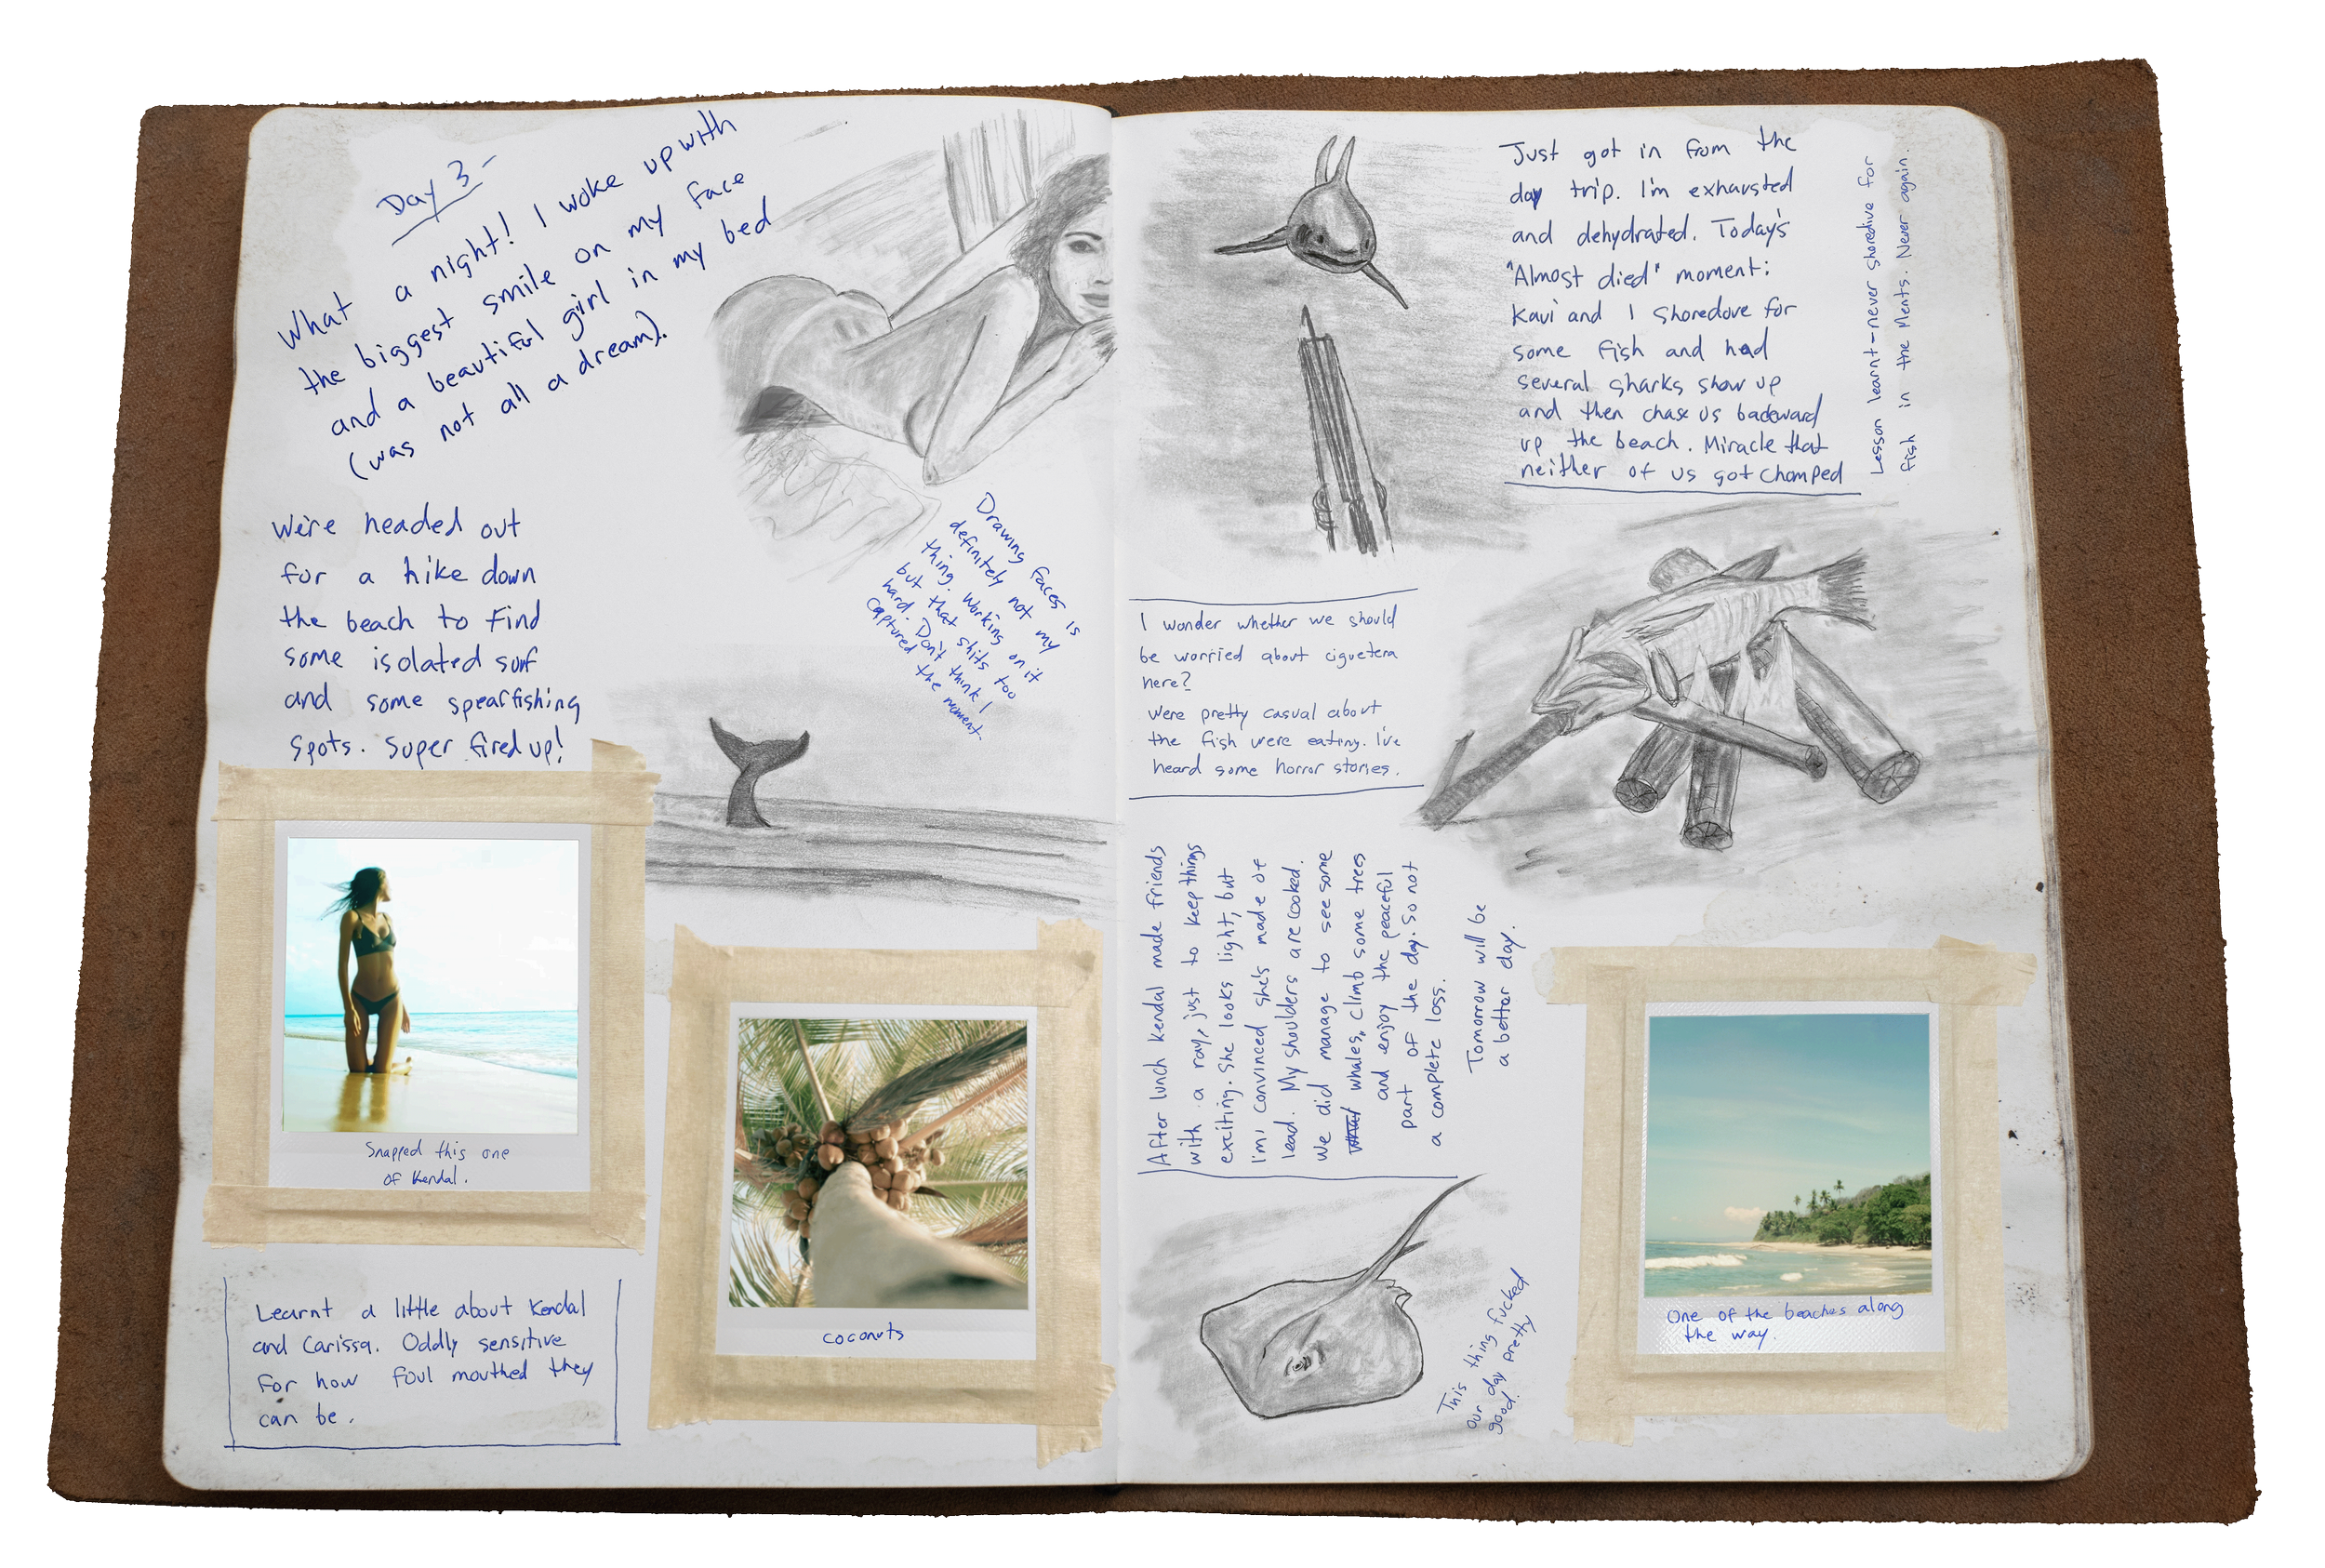 Day 3-
What a night! I woke up with
the biggest smile on my face
and a beautiful girl in my bed
(was not all a dream).
We're headed out
for a hike down
the beach to find
some isolated surf
and some spearfishing
spots. Super fired up!
Drawing faces is
definitely not my
thing. Working on it
but that shits too
hard. Don't think I
captured the moment.
Snapped this one
of Kendal.
Learnt a little about Kendal
and Carissa. Oddly sensitive
for how foul mouthed they
can be.
coconuts
Just got in from the
day trip. I'm exhausted
and dehydrated. Today's
"Almost died" moment:
Kavi and I shoredove for
some fish and had
several sharks show up
and then chase us backward
up the beach. Miracle that
neither of us got chomped
Lesson learnt-never shoredive for
fish in the Ments. Never again.
I wonder whether we should
be worried about ciguetera
here?
Were pretty casual about
the fish were eating. I've
heard some horror stories.
After lunch Kendal made friends
with a ray, just to keep things
exciting. She looks light, but
I'm convinced she's made of
lead. My shoulders are cooked.
We did manage to see some
whales, climb some trees
and enjoy the peaceful
part of the day. So not
a complete loss.
Tomorrow will be
a better day.
This thing fucked
our day pretty
good.
One of the beaches along
the way.